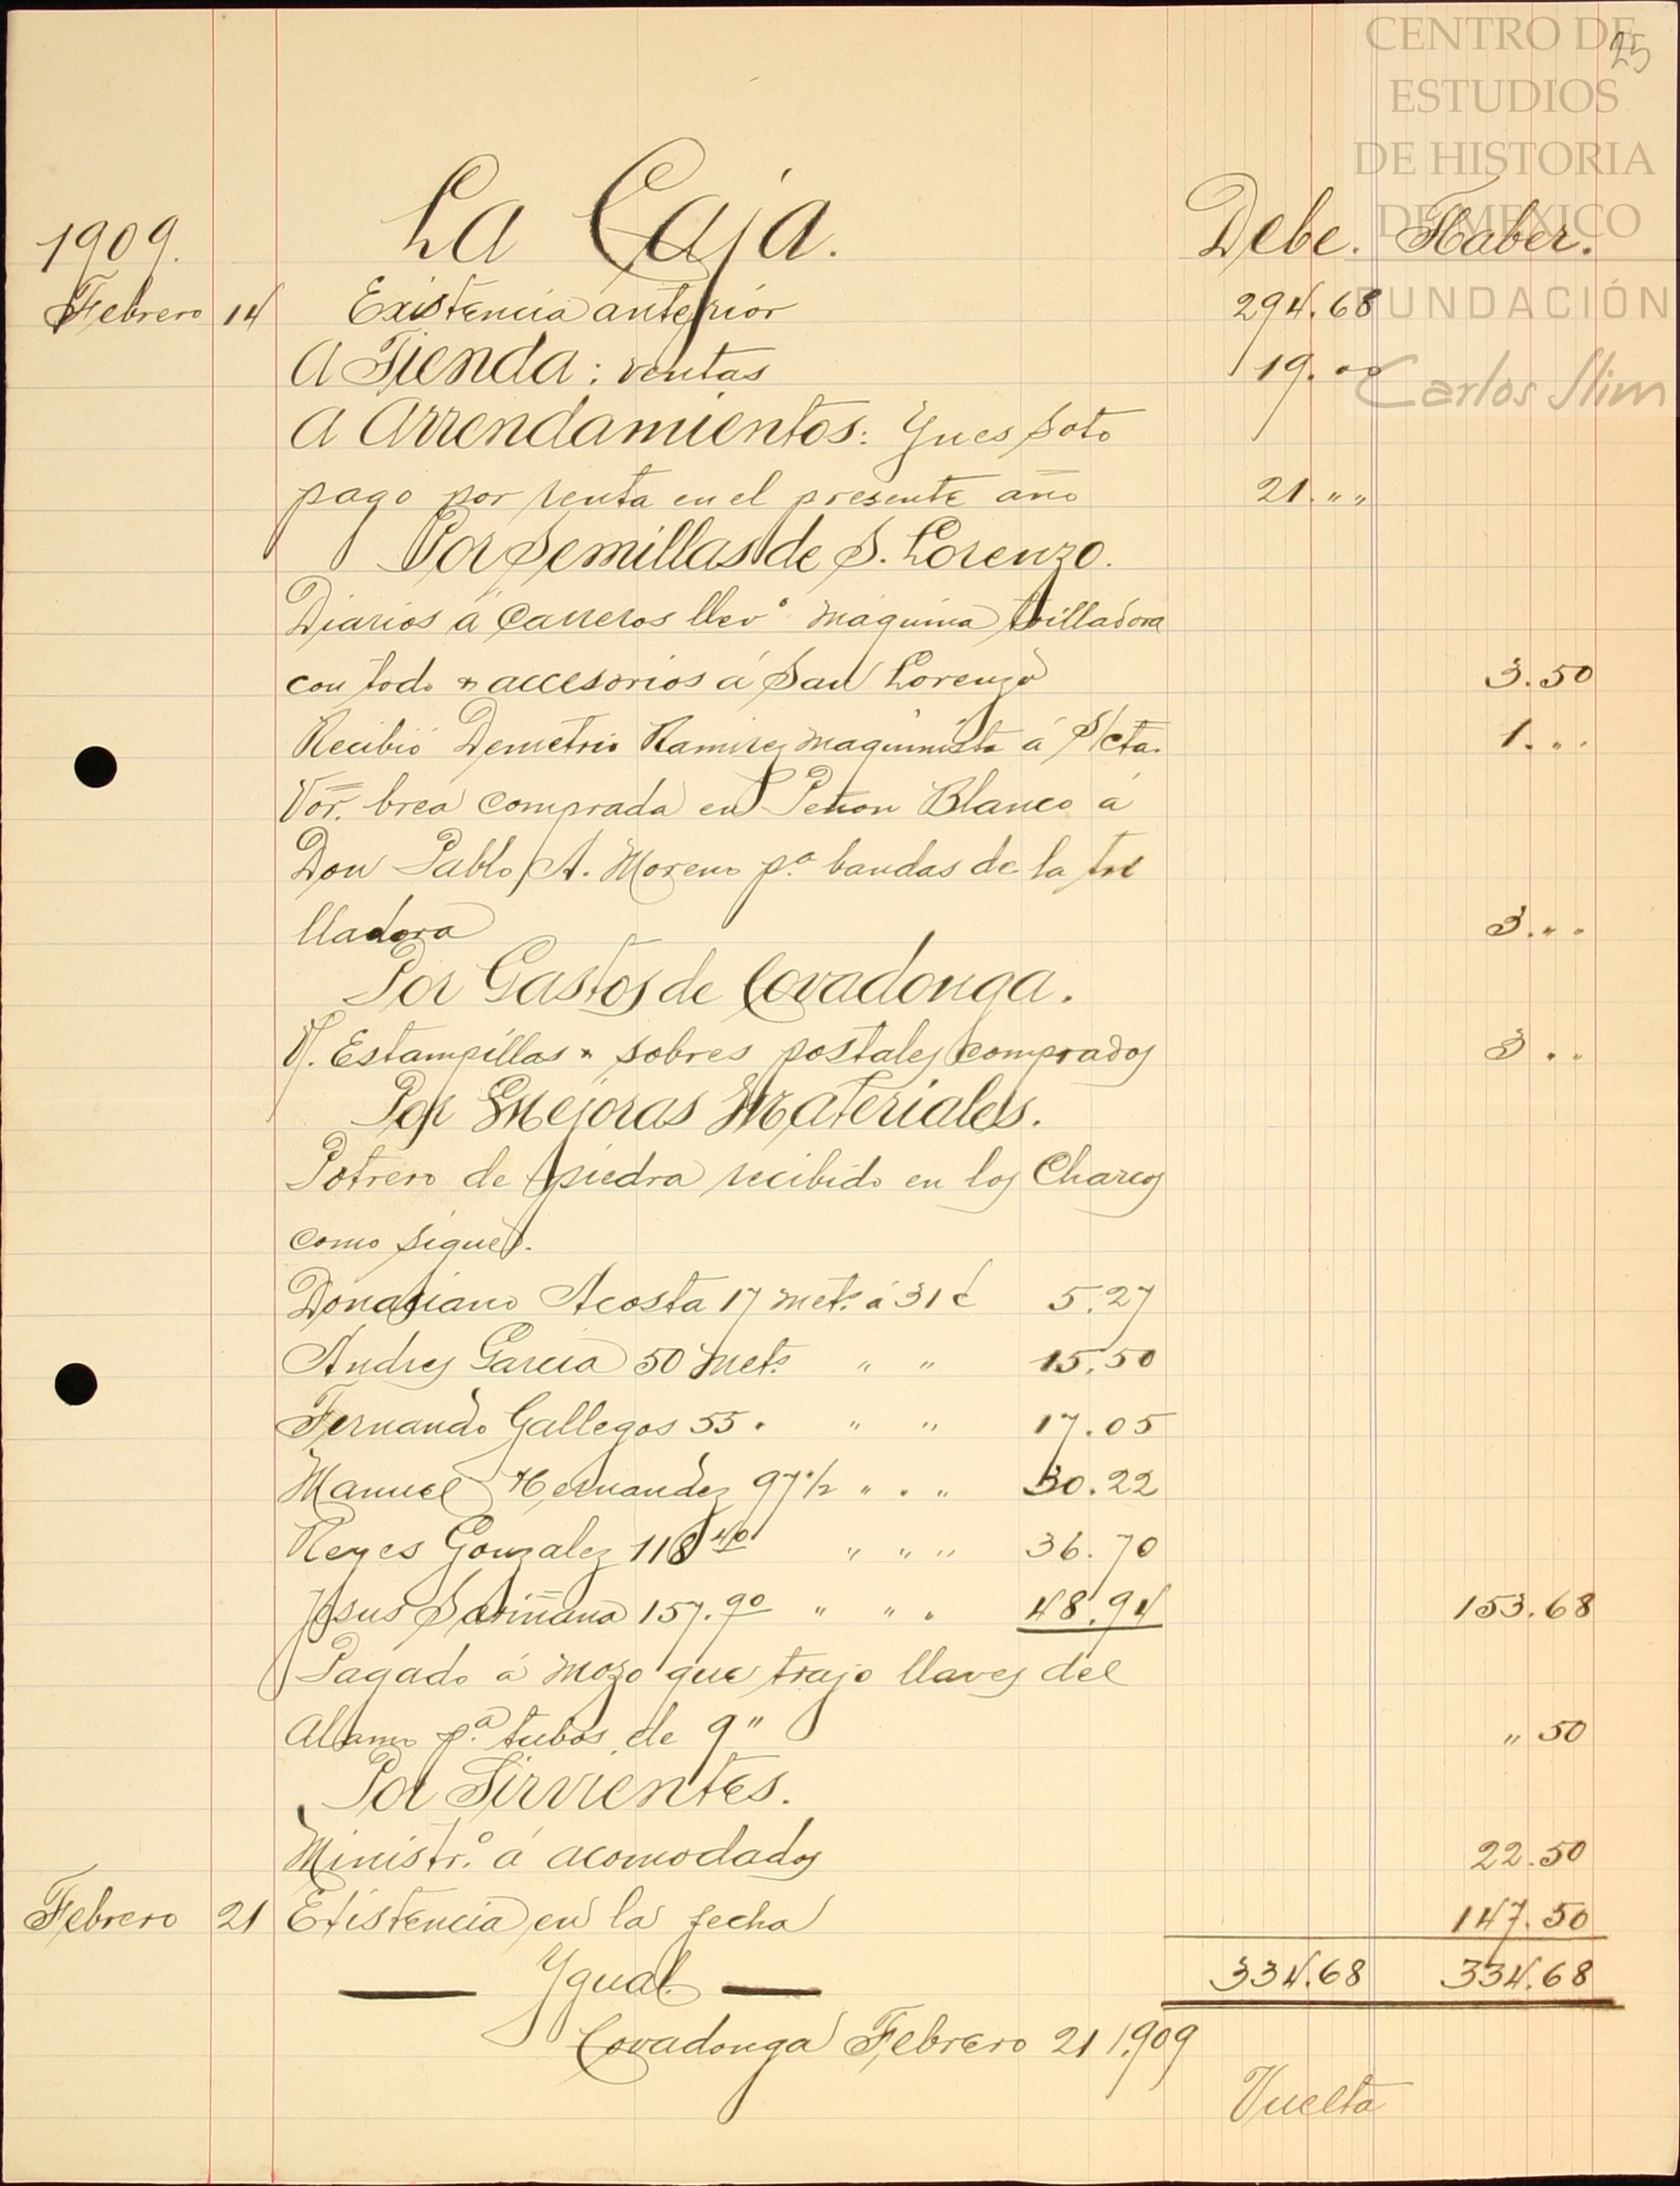 CENTRO DE
ESTUDIOS
DE HISTORIA
DE MÉXICO
FUNDACIÓN
Carlos Slim
25
1909. La Caja. Debe. Haber.
Febrero 14 Existencia anterior 294.68
A Tienda: ventas 19.00
A Arrendamientos: Ynes Soto
pago por renta en el presente año 21.„„
Por Semillas de S. Lorenzo.
Diarios á Carreros llevº máquina trilladora
con todo y accesorios á San Lorenzo 3.50
Recibió Demetrio Ramirez maquinista á S/cta. 1.„„
Vor. brea comprada en Peñon Blanco á
Don Pablo A. Moreno pª bandas de la tri
lladora 3.„„
Por Gastos de Covadonga.
V. Estampillas y sobres postales comprados 3.„„
Por Mejoras Materiales.
Potrero de piedra recibido en los Charcos
como sigue.
Donaciano Acosta 17 mets. á 31 ¢ 5.27
Andres Garcia 50 mets. „ „ 15.50
Fernando Gallegos 55 „ „ „ 17.05
Manuel Hernandez 97 1/2 „ „ „ 30.22
Reyes Gonzalez 118 40 „ „ „ 36.70
Jesus Sariñana 157.90 „ „ „ 48.94 153.68
Pagado á mozo que trajo llaves del
Alamo pª tubos de 9" „ 50
Por Sirvientes.
Ministrº á acomodados 22.50
Febrero 21 Existencia en la fecha 147.50
Ygual 334.68 334.68
Covadonga Febrero 21 1.909
Vuelta